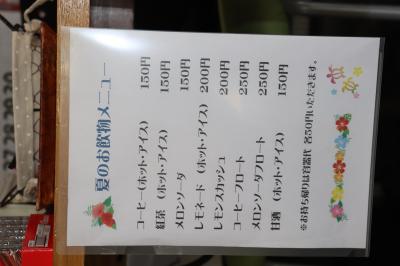 夏のお飲物メニュー
コーヒー(ホット・アイス) 150円
紅茶 (ホット・アイス) 150円
メロンソーダ 150円
レモネード (ホット・アイス) 200円
レモンスカッシュ 200円
コーヒーフロート 250円
メロンソーダフロート 250円
甘酒 (ホット・アイス) 150円
※お持ち帰りは容器代 各50円いただきます。